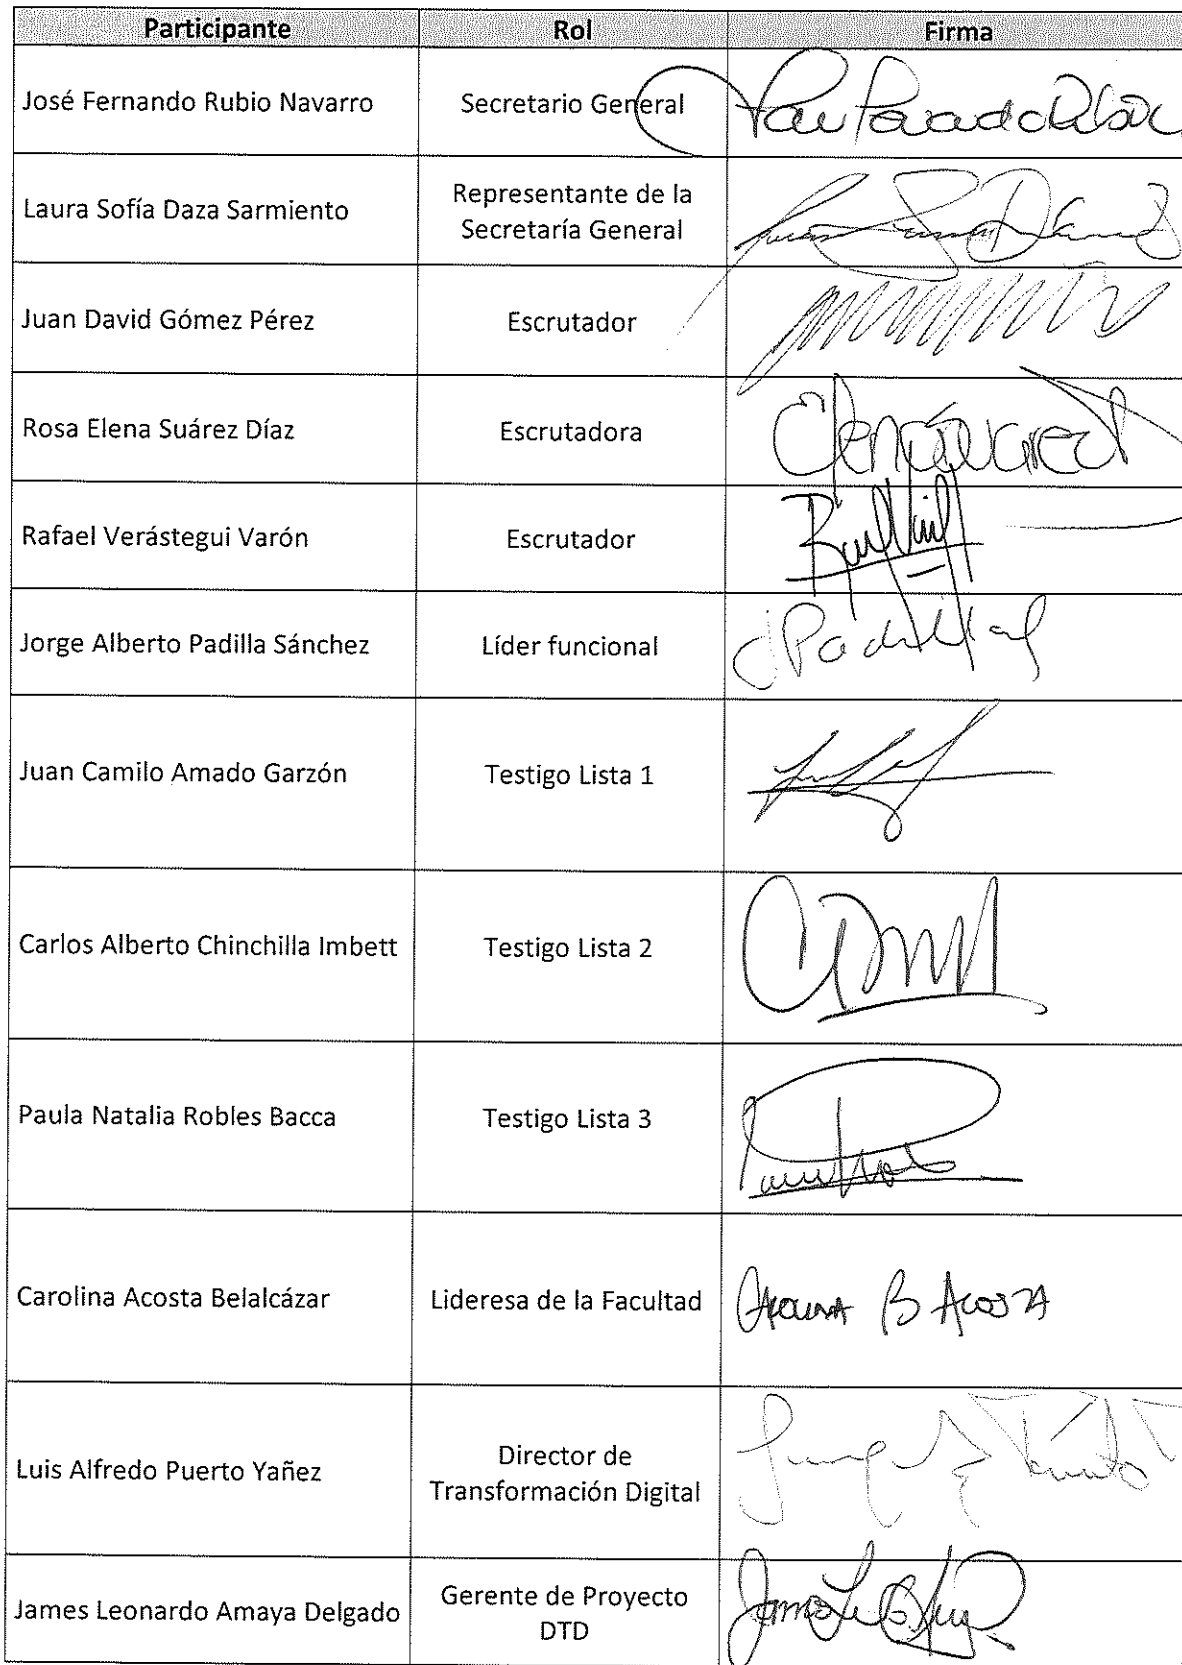 Participante Rol Firma
José Fernando Rubio Navarro Secretario General
Laura Sofía Daza Sarmiento Representante de la
Secretaría General
Juan David Gómez Pérez Escrutador
Rosa Elena Suárez Díaz Escrutadora
Rafael Verástegui Varón Escrutador
Jorge Alberto Padilla Sánchez Líder funcional
Juan Camilo Amado Garzón Testigo Lista 1
Carlos Alberto Chinchilla Imbett Testigo Lista 2
Paula Natalia Robles Bacca Testigo Lista 3
Carolina Acosta Belalcázar Lideresa de la Facultad Carolina B Acosta
Luis Alfredo Puerto Yañez Director de
Transformación Digital
James Leonardo Amaya Delgado Gerente de Proyecto
DTD